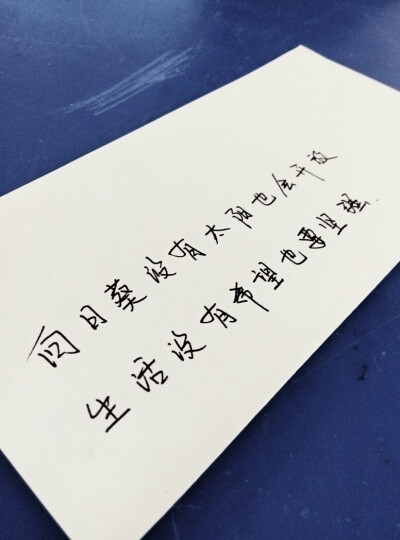 向日葵没有太阳也会开放
生活没有希望也要坚强